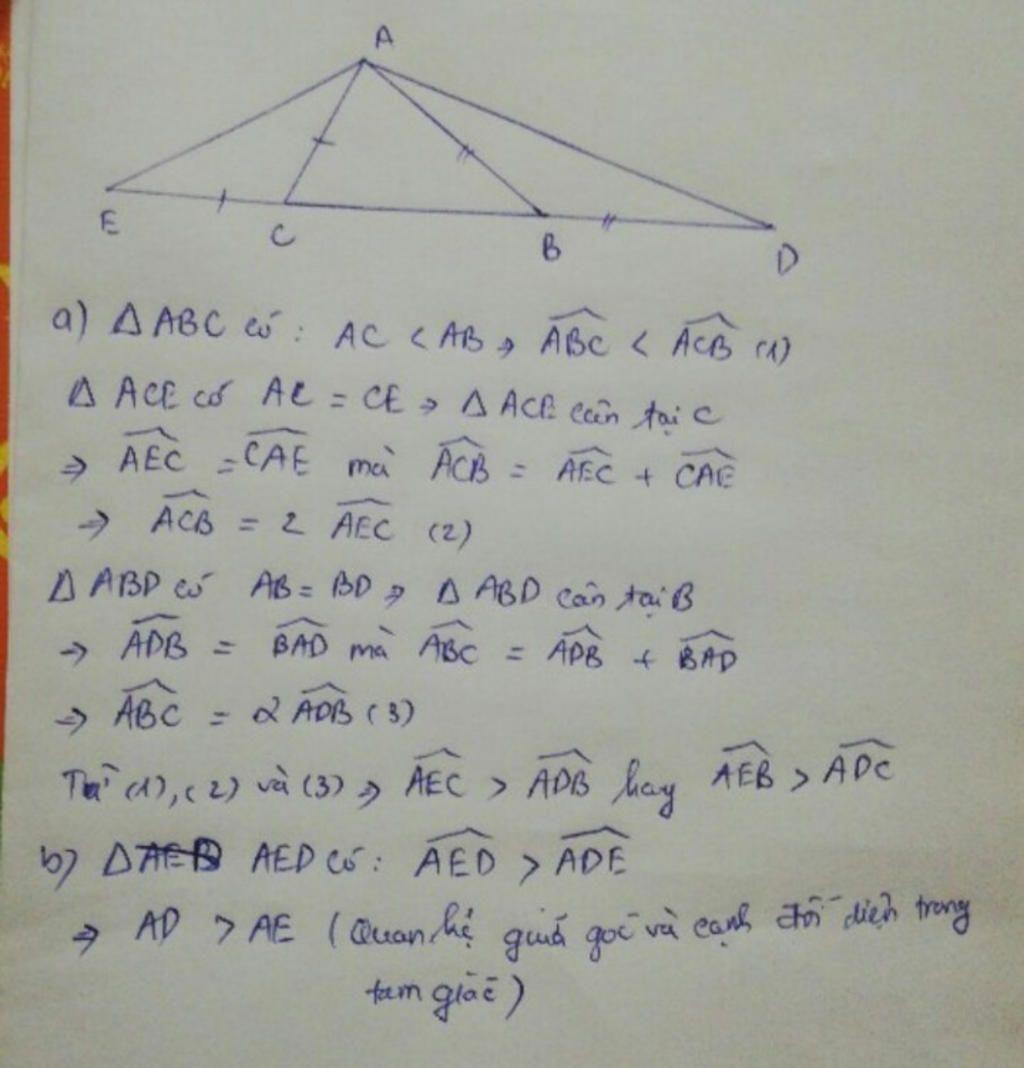 A
E
C
B
D
a) Δ ABC có: AC < AB ⇒ \widehat{ABC} < \widehat{ACB} (1)
Δ ACE có AC = CE ⇒ Δ ACE cân tại C
⇒ \widehat{AEC} = \widehat{CAE} mà \widehat{ACB} = \widehat{AEC} + \widehat{CAE}
⇒ \widehat{ACB} = 2 \widehat{AEC} (2)
Δ ABD có AB = BD ⇒ Δ ABD cân tại B
⇒ \widehat{ADB} = \widehat{BAD} mà \widehat{ABC} = \widehat{ADB} + \widehat{BAD}
⇒ \widehat{ABC} = 2 \widehat{ADB} (3)
Từ (1), (2) và (3) ⇒ \widehat{AEC} > \widehat{ADB} hay \widehat{AEB} > \widehat{ADC}
b) Δ AED có: \widehat{AED} > \widehat{ADE}
⇒ AD > AE (Quan hệ giữa góc và cạnh đối diện trong
tam giác)